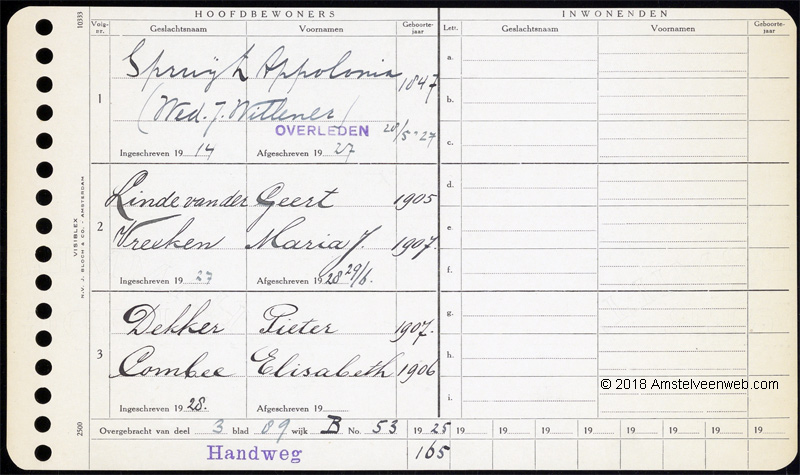 HOOFDBEWONERS INWONENDEN
Volg-nr. Geslachtsnaam Voornamen Geboorte-jaar Letr. Geslachtsnaam Voornamen Geboorte-jaar
10333
1 Spruijt Appolonia 1847
(Wed. J. Wittener)
OVERLEDEN 28/5-27
Ingeschreven 19 14 Afgeschreven 19 27
a.
b.
c.
2 Linde van der Geert 1905
Vreeken Maria J. 1907.
Ingeschreven 19 27 Afgeschreven 19 28 29/6.
d.
e.
f.
3 Dekker Pieter 1907.
Combee Elisabeth 1906
Ingeschreven 19 28. Afgeschreven 19
g.
h.
i.
VISIBLEX
N.V. J. BLOCH & CO. - AMSTERDAM
2500
Overgebracht van deel 3 blad 89 wijk B No. 53 19 25 19 19 19 19 19 19 19 19
Handweg 165
© 2018 Amstelveenweb.com